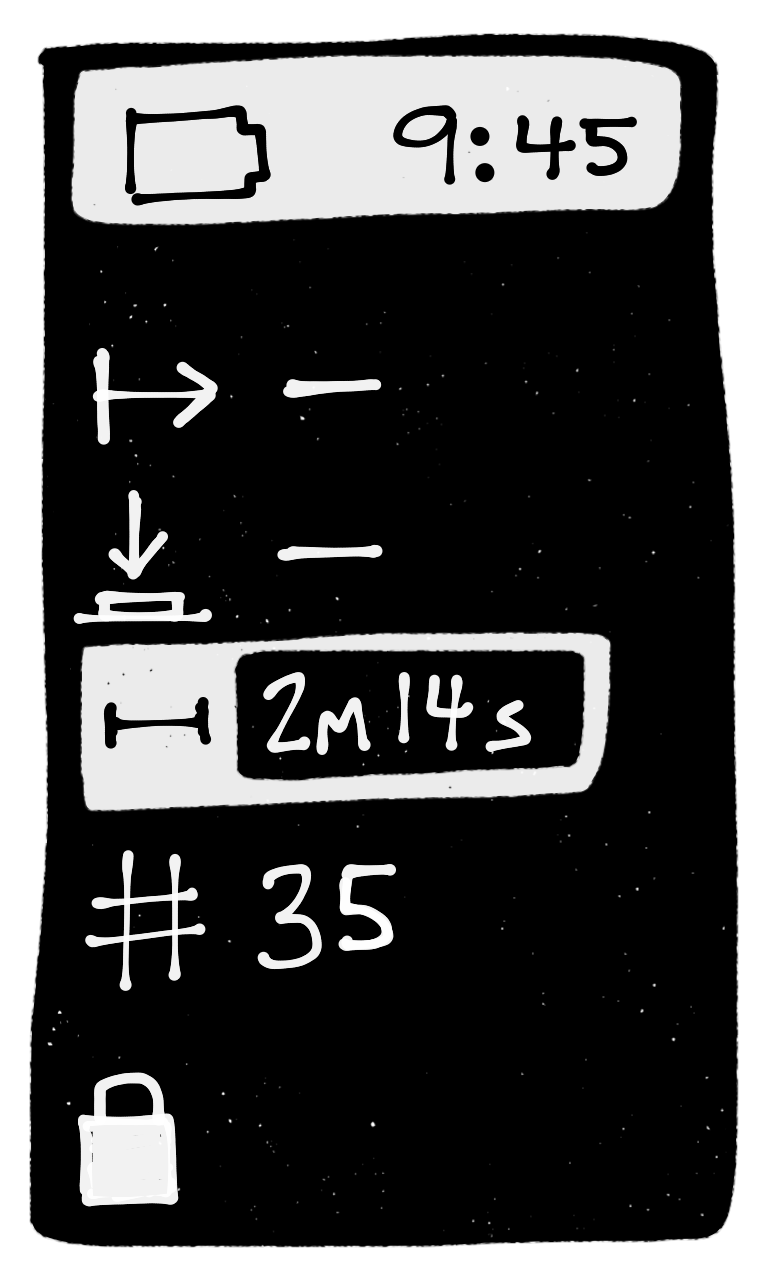 9:45
—
—
2m 14s
# 35